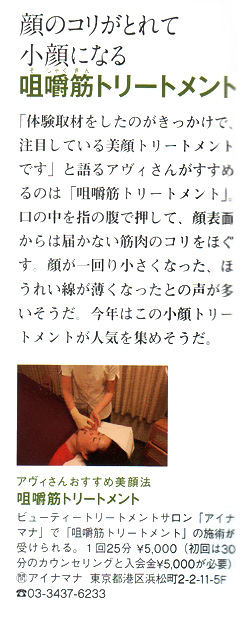 顔のコリがとれて
小顔になる
そしゃくきん
咀嚼筋トリートメント
「体験取材をしたのがきっかけで、
注目している美顔トリートメント
です」と語るアヴィさんがすすめ
るのは「咀嚼筋トリートメント」。
口の中を指の腹で押して、顔表面
からは届かない筋肉のコリをほぐ
す。顔が一回り小さくなった、ほ
うれい線が薄くなったとの声が多
いそうだ。今年はこの小顔トリー
トメントが人気を集めそうだ。
アヴィさんおすすめ美顔法
咀嚼筋トリートメント
ビューティートリートメントサロン「アイナ
マナ」で「咀嚼筋トリートメント」の施術が
受けられる。1回25分 ¥5,000(初回は30
分のカウンセリングと入会金¥5,000が必要)
㉄アイナマナ 東京都港区浜松町2-2-11-5F
☎03-3437-6233